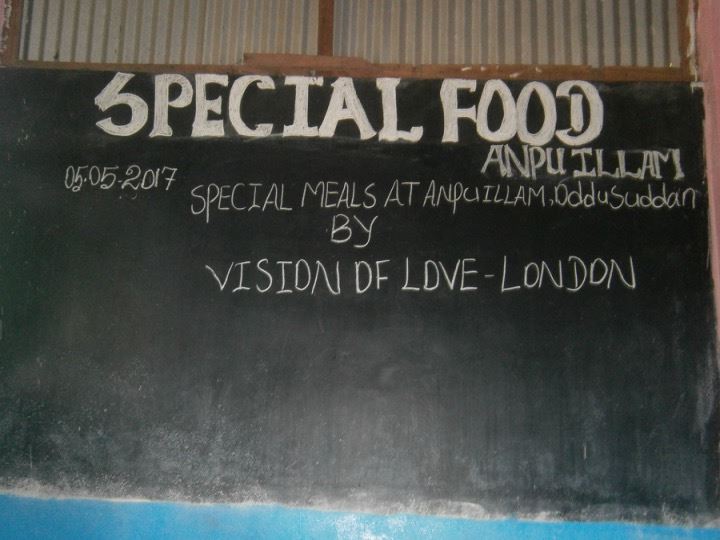 SPECIAL FOOD
ANPU ILLAM
05.05.2017
SPECIAL MEALS AT ANPUILLAM, Oddusuddan
BY
VISION OF LOVE-LONDON